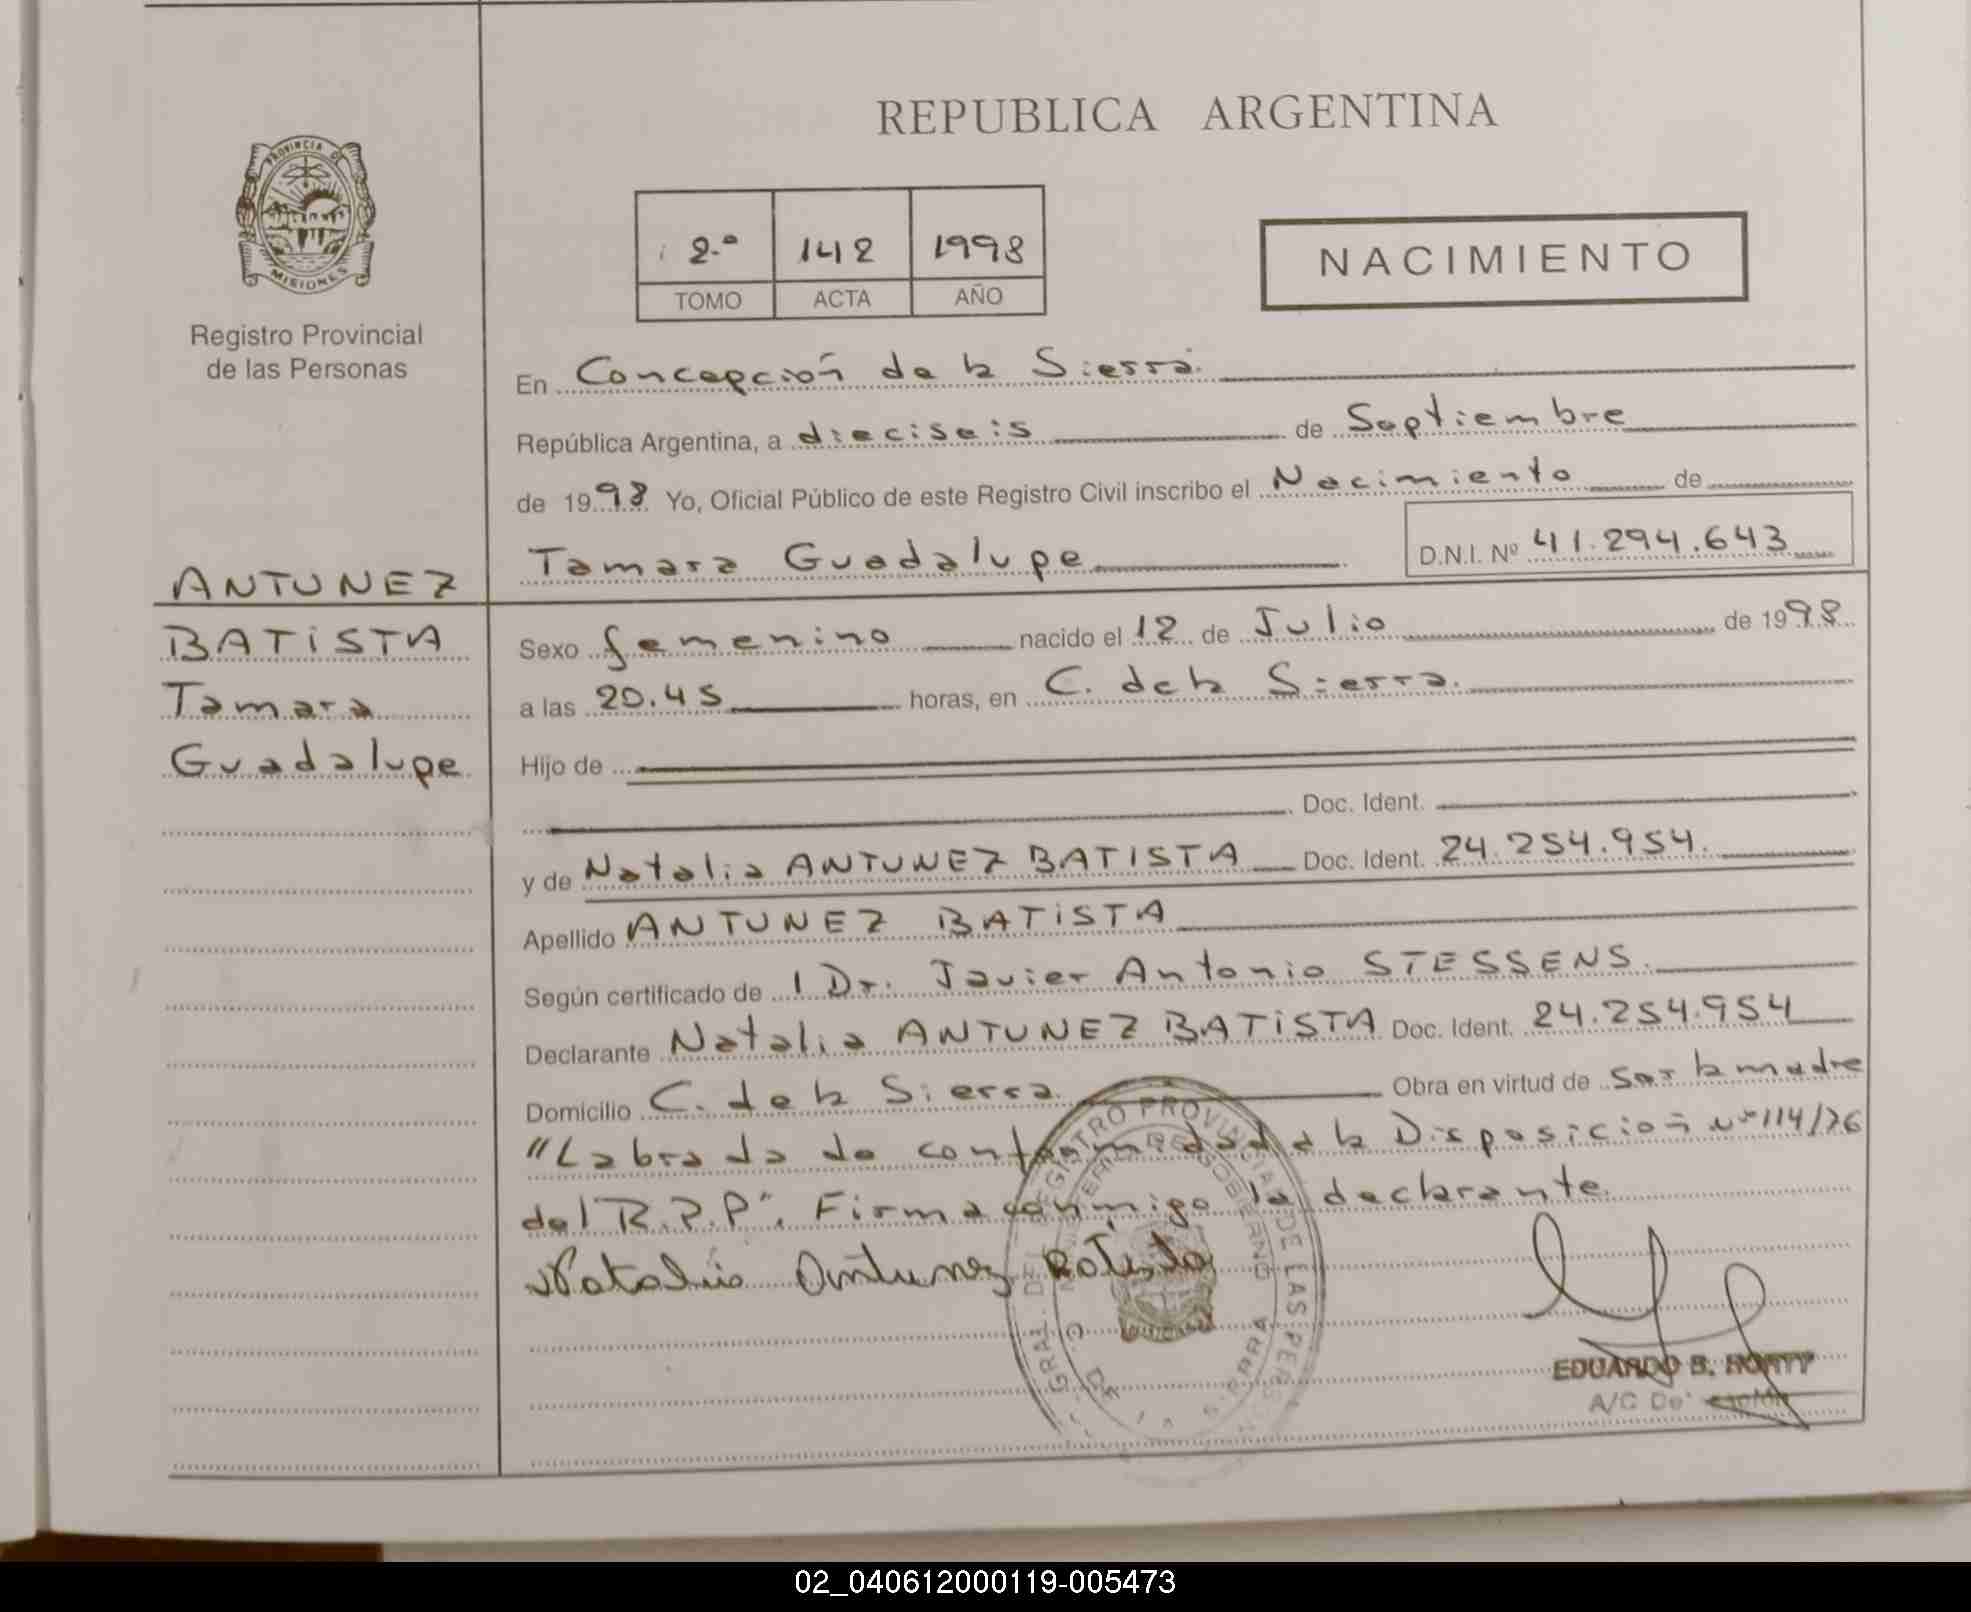 REPUBLICA ARGENTINA
PROVINCIA DE
MISIONES
Registro Provincial
de las Personas
2.º 142 1998
TOMO ACTA AÑO
NACIMIENTO
En Concepción de la Sierra
República Argentina, a dieciseis de Septiembre
de 1998 Yo, Oficial Público de este Registro Civil inscribo el Nacimiento de
Tamara Guadalupe D.N.I. Nº 41.294.643
ANTUNEZ
BATISTA
Tamara
Guadalupe
Sexo femenino nacido el 12 de Julio de 1998
a las 20.45 horas, en C. de la Sierra.
Hijo de
Doc. Ident.
y de Natalia ANTUNEZ BATISTA Doc. Ident. 24.254.954.
Apellido ANTUNEZ BATISTA
Según certificado de l Dr. Javier Antonio STESSENS.
Declarante Natalia ANTUNEZ BATISTA Doc. Ident. 24.254.954
Domicilio C. de la Sierra Obra en virtud de ser la madre
"Labrada de conformidad a la Disposición Nº 114/76
del R.P.P". Firma conmigo la declarante.
Natalia Antunez Batista
REGISTRO PROVINCIAL DE LAS PERSONAS
GOBIERNO
EDUARDO B.
A/C De
02_040612000119-005473